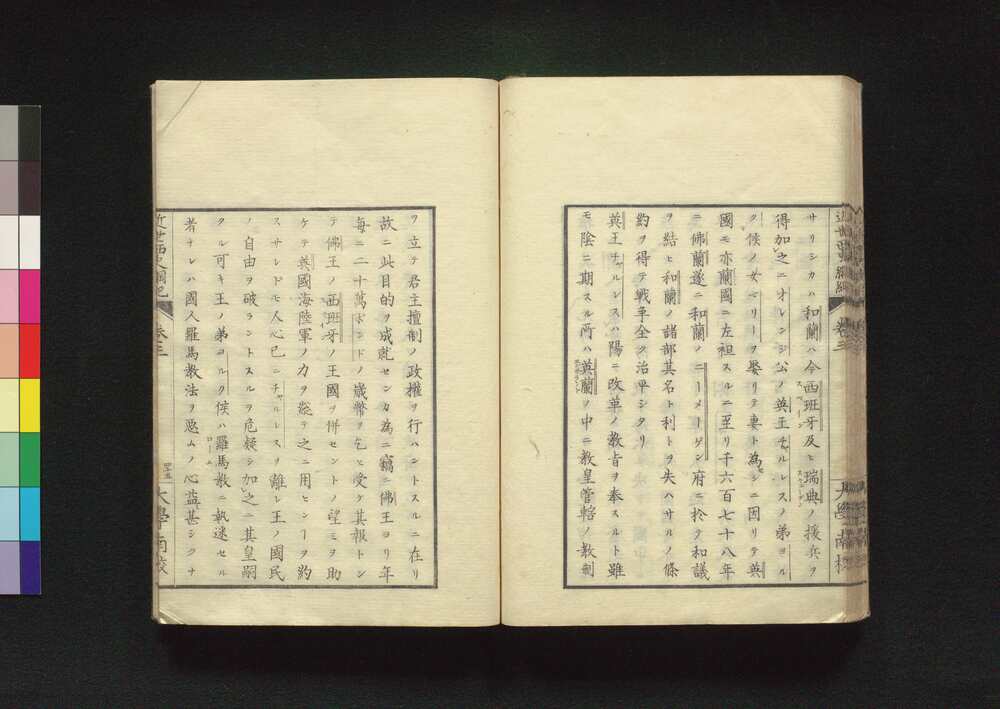 サリシカハ和蘭ハ今西班牙及ヒ瑞典ノ援兵ヲ
得加之ニオレンジ公ノ英王チャルレスノ弟ヨル
ク候ノ女マリーヲ娶リテ妻ト為セシニ因リテ英
國モ亦蘭國ニ左袒スルニ至リ千六百七十八年
ニ佛蘭遂ニ和蘭ノニーメーゲン府ニ於テ和議
ヲ結ヒ和蘭ノ諸部其名ト利トヲ失ハサルノ條
約ヲ得テ戰爭全ク治平シタリ
英王チャルレスハ陽ニ改革ノ教旨ヲ奉スルト雖
モ陰ニ期スル所ハ英蘭ノ中ニ教皇管轄ノ教制
近世西史綱紀 卷三
大學南校
ヲ立テ君主擅制ノ政權ヲ行ハントスルニ在リ
故ニ此目的ヲ成就センカ為ニ竊ニ佛王ヨリ年
每ニ二十萬ポンドノ歳幣ヲ乞ヒ受ケ其報トン
テ佛王ノ西班牙ノ王國ヲ併セントノ望ミヲ助
ケテ英國海陸軍ノ力ヲ盡テ之ニ用ヒンヿヲ約
スサレドモ人心已ニチャルレスヲ離レ王ノ國民
ノ自由ヲ破ラントスルヲ危疑シ加之ニ其皇嗣
タル可キ王ノ弟ヨルク侯ハ羅馬教ニ執迷セル
者ナレハ國人羅馬教法ヲ惡ムノ心益甚シクナ
近世西史綱紀 卷三
四十五 大學南校